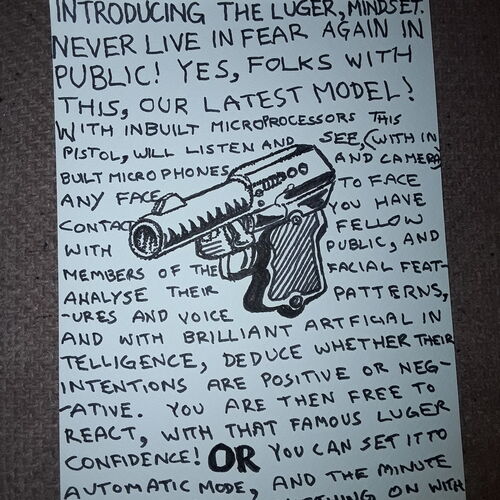 INTRODUCING THE LUGER, MINDSET.
NEVER LIVE IN FEAR AGAIN IN
PUBLIC! YES, FOLKS WITH
THIS, OUR LATEST MODEL!
WITH INBUILT MICROPROCESSORS THIS
PISTOL, WILL LISTEN AND SEE, (WITH IN
BUILT MICROPHONES AND CAMERA)
ANY FACE TO FACE
CONTACT YOU HAVE
WITH FELLOW
MEMBERS OF THE PUBLIC, AND
ANALYSE THEIR FACIAL FEAT-
-URES AND VOICE PATTERNS,
AND WITH BRILLIANT ARTFICIAL IN
TELLIGENCE, DEDUCE WHETHER THEIR
INTENTIONS ARE POSITIVE OR NEG-
-ATIVE. YOU ARE THEN FREE TO
REACT, WITH THAT FAMOUS LUGER
CONFIDENCE! OR YOU CAN SET IT TO
AUTOMATIC MODE, AND THE MINUTE
ON WITH